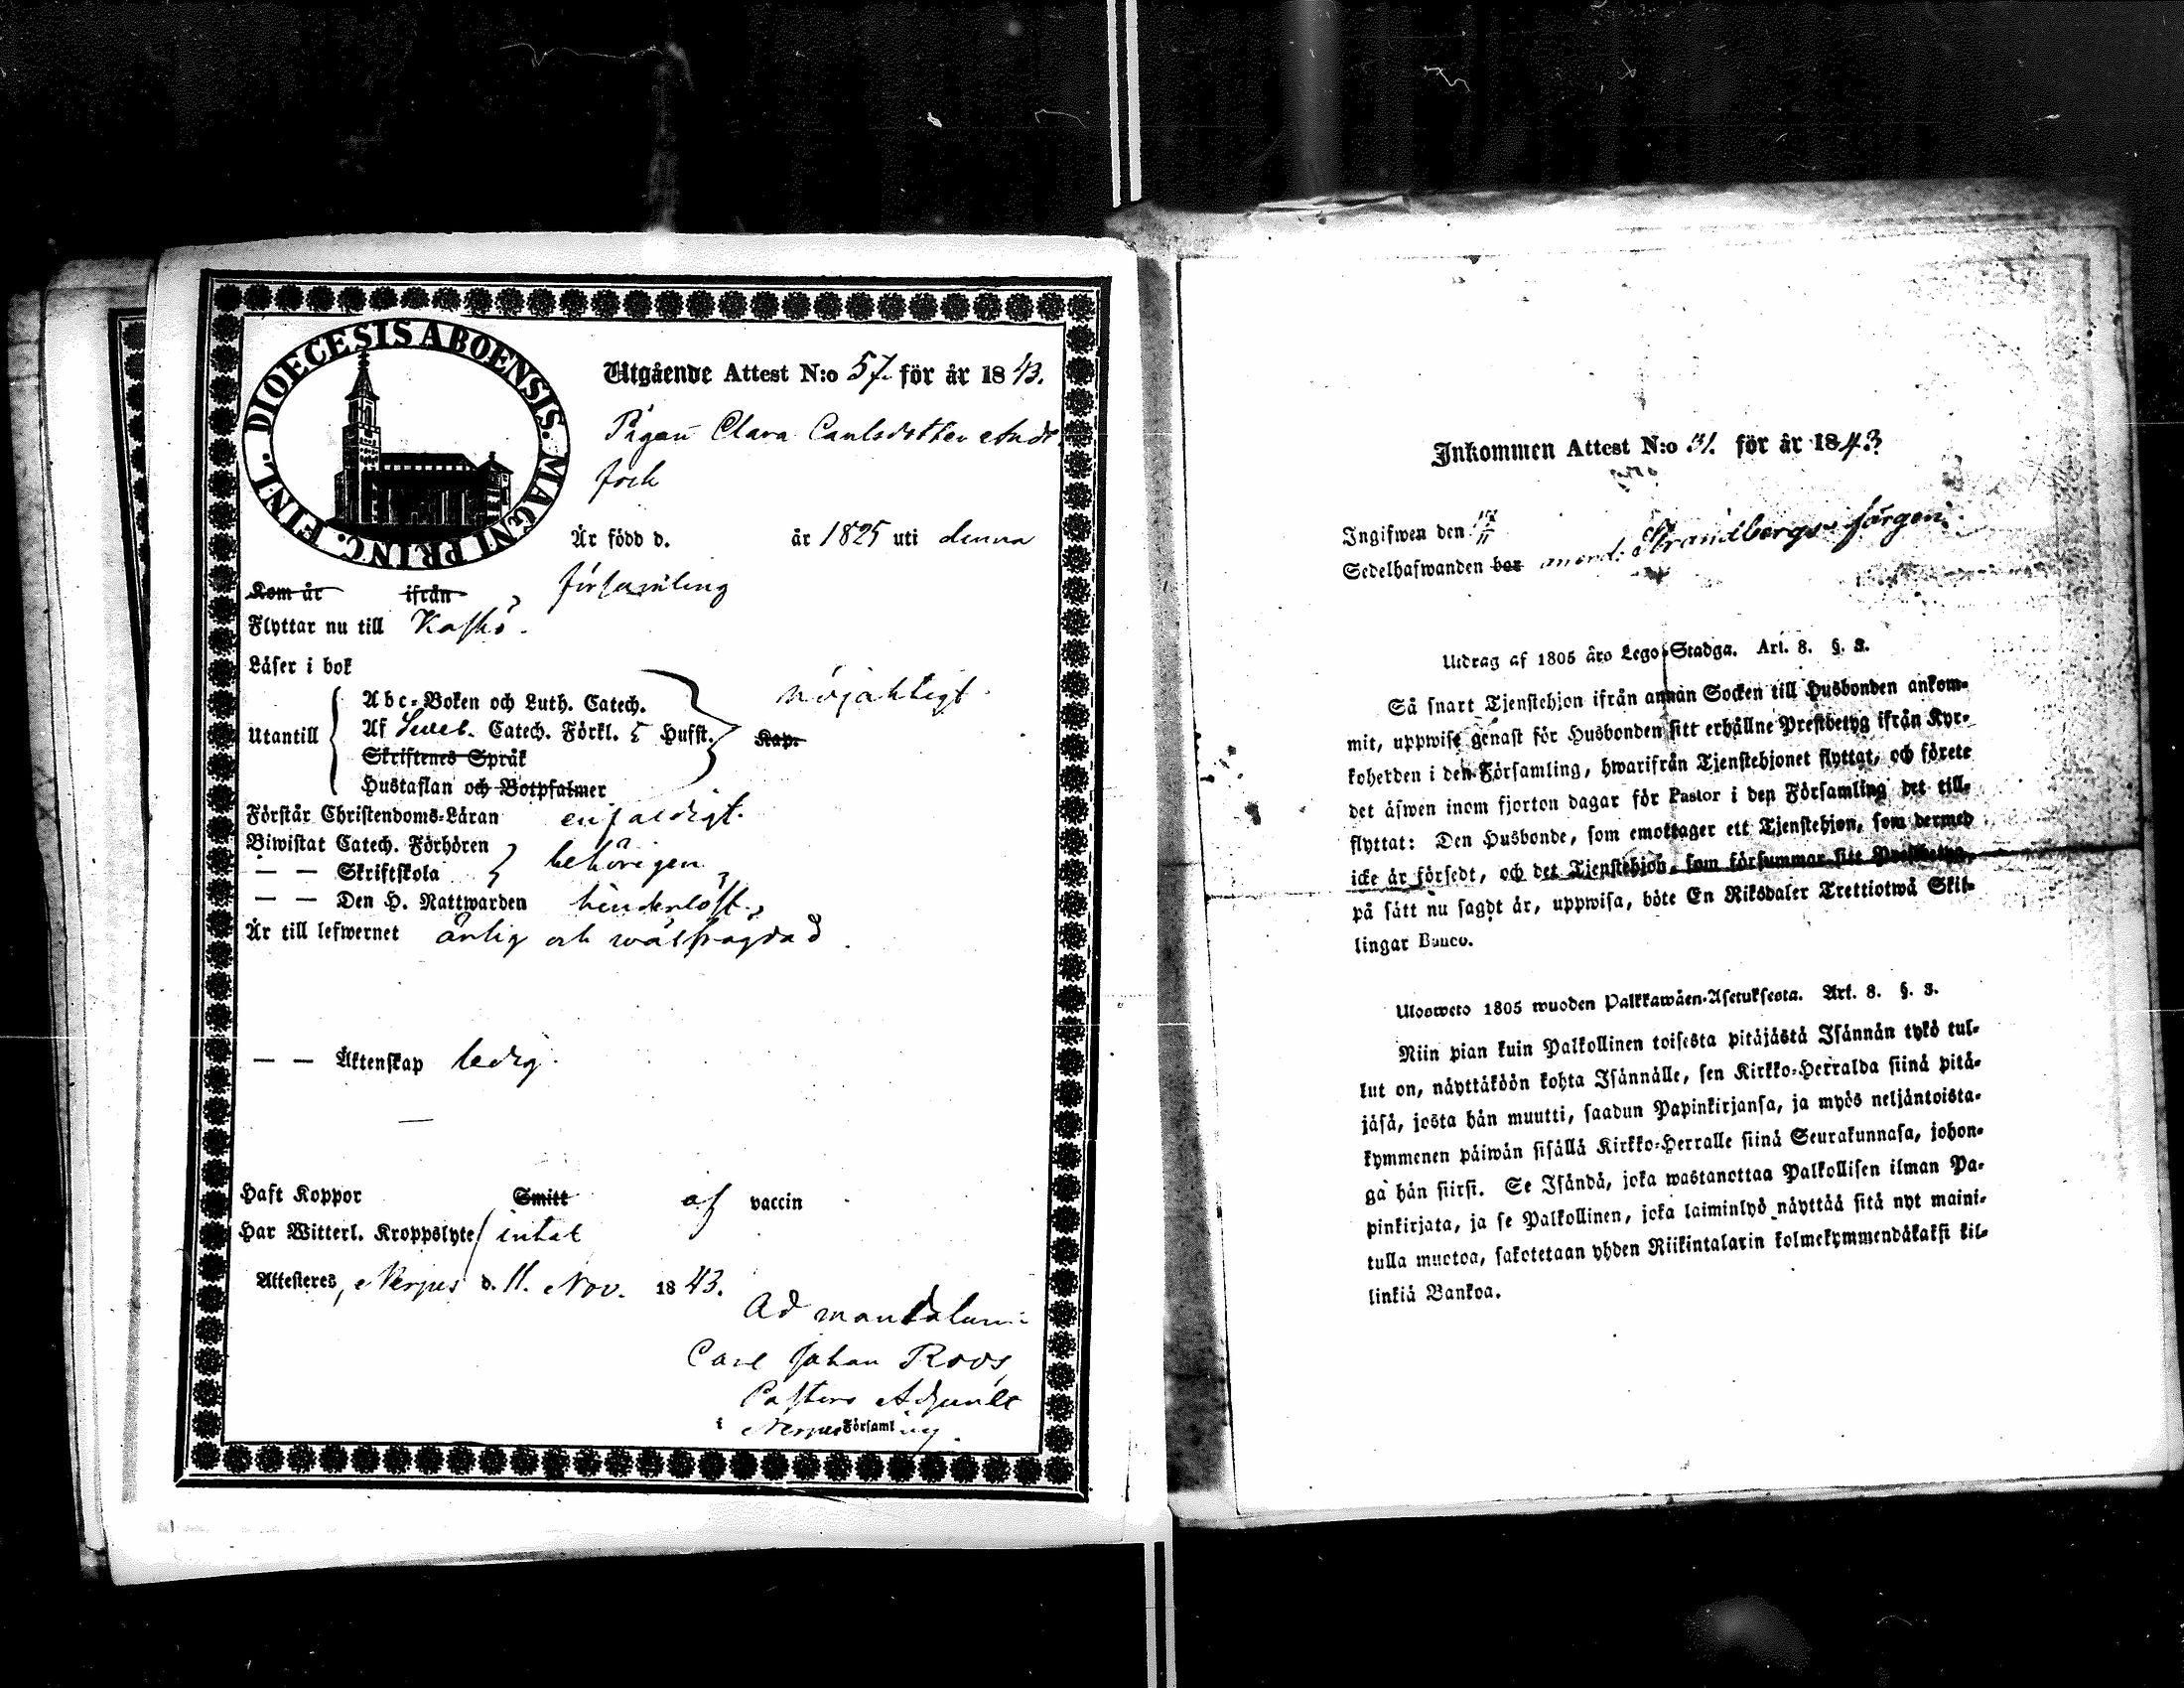 DIOECESIS ABOENSIS. MAGNI PRINC. FINL.
Utgående Attest N:o 57. för år 1843.
Pigan Clara Carlsdotter
År född d. år 1825 uti denna
församling
Kom år ifrån
Flyttar nu till Kaskö.
Läser i bok nöjaktigt.
Utantill
Abc-Boken och Luth. Catech.
Af Sveb. Catech. Förkl. 5 Hufst. Kap.
Skriftenes Språk
Hustaflan och Botpsalmer
Förstår Christendoms-Läran enfaldigt.
Biwistat Catech. Förhören
— — Skriftskola behörigen
— — Den H. Nattwarden hinderlöst.
Är till lefwernet ärlig och wälfrägdad.
— — Äktenskap ledig.
Haft Koppor Smitt af vaccin
Har Witterl. Kroppslyte intet
Attesteres, Nerpes d. 11. Nov. 1843.
Ad mandatum:
Carl Johan Roos
Pastors Adjunkt
i Nerpes Församling.
Inkommen Attest N:o 31. för år 1843
Ingifwen den
Sedelhafwanden bor Strandbergs
Utdrag af 1805 åro Lego-Stadga. Art. 8. §. 3.
Så snart Tjenstehjon ifrån annan Socken till Husbonden ankom-
mit, uppwise genast för Husbonden sitt erhållne Prestbetyg ifrån Kyr-
koherden i den Församling, hwarifrån Tjenstehjonet flyttat, och förete
det äfwen inom fjorton dagar för Pastor i den Församling det till-
flyttat: Den Husbonde, som emottager ett Tjenstehjon, som dermed
icke är försedt, och det Tjenstehjon, som försummar sitt Prestbetyg,
på sätt nu sagdt är, uppwisa, böte En Riksdaler Trettiotwå Skil-
lingar Banco.
Ulosweto 1805 wuoden Palkkawäen-Asetuksesta. Art. 8. §. 3.
Niin pian kuin Palkollinen toisesta pitäjästä Isännän tykö tul-
lut on, näyttäköön kohta Isännälle, sen Kirkko-Herralda siinä pitä-
jäsä, josta hän muutti, saadun Papinkirjansa, ja myös neljäntoista-
kymmenen päiwän sisällä Kirkko-Herralle siinä Seurakunnasa, johon-
ga hän siirsi. Se Isändä, joka wastanottaa Palkollisen ilman Pa-
pinkirjata, ja se Palkollinen, joka laiminlyö näyttää sitä nyt maini-
tulla muotoa, sakotetaan yhden Riikintalarin kolmekymmendäkaksi kil-
linkiä Bankoa.